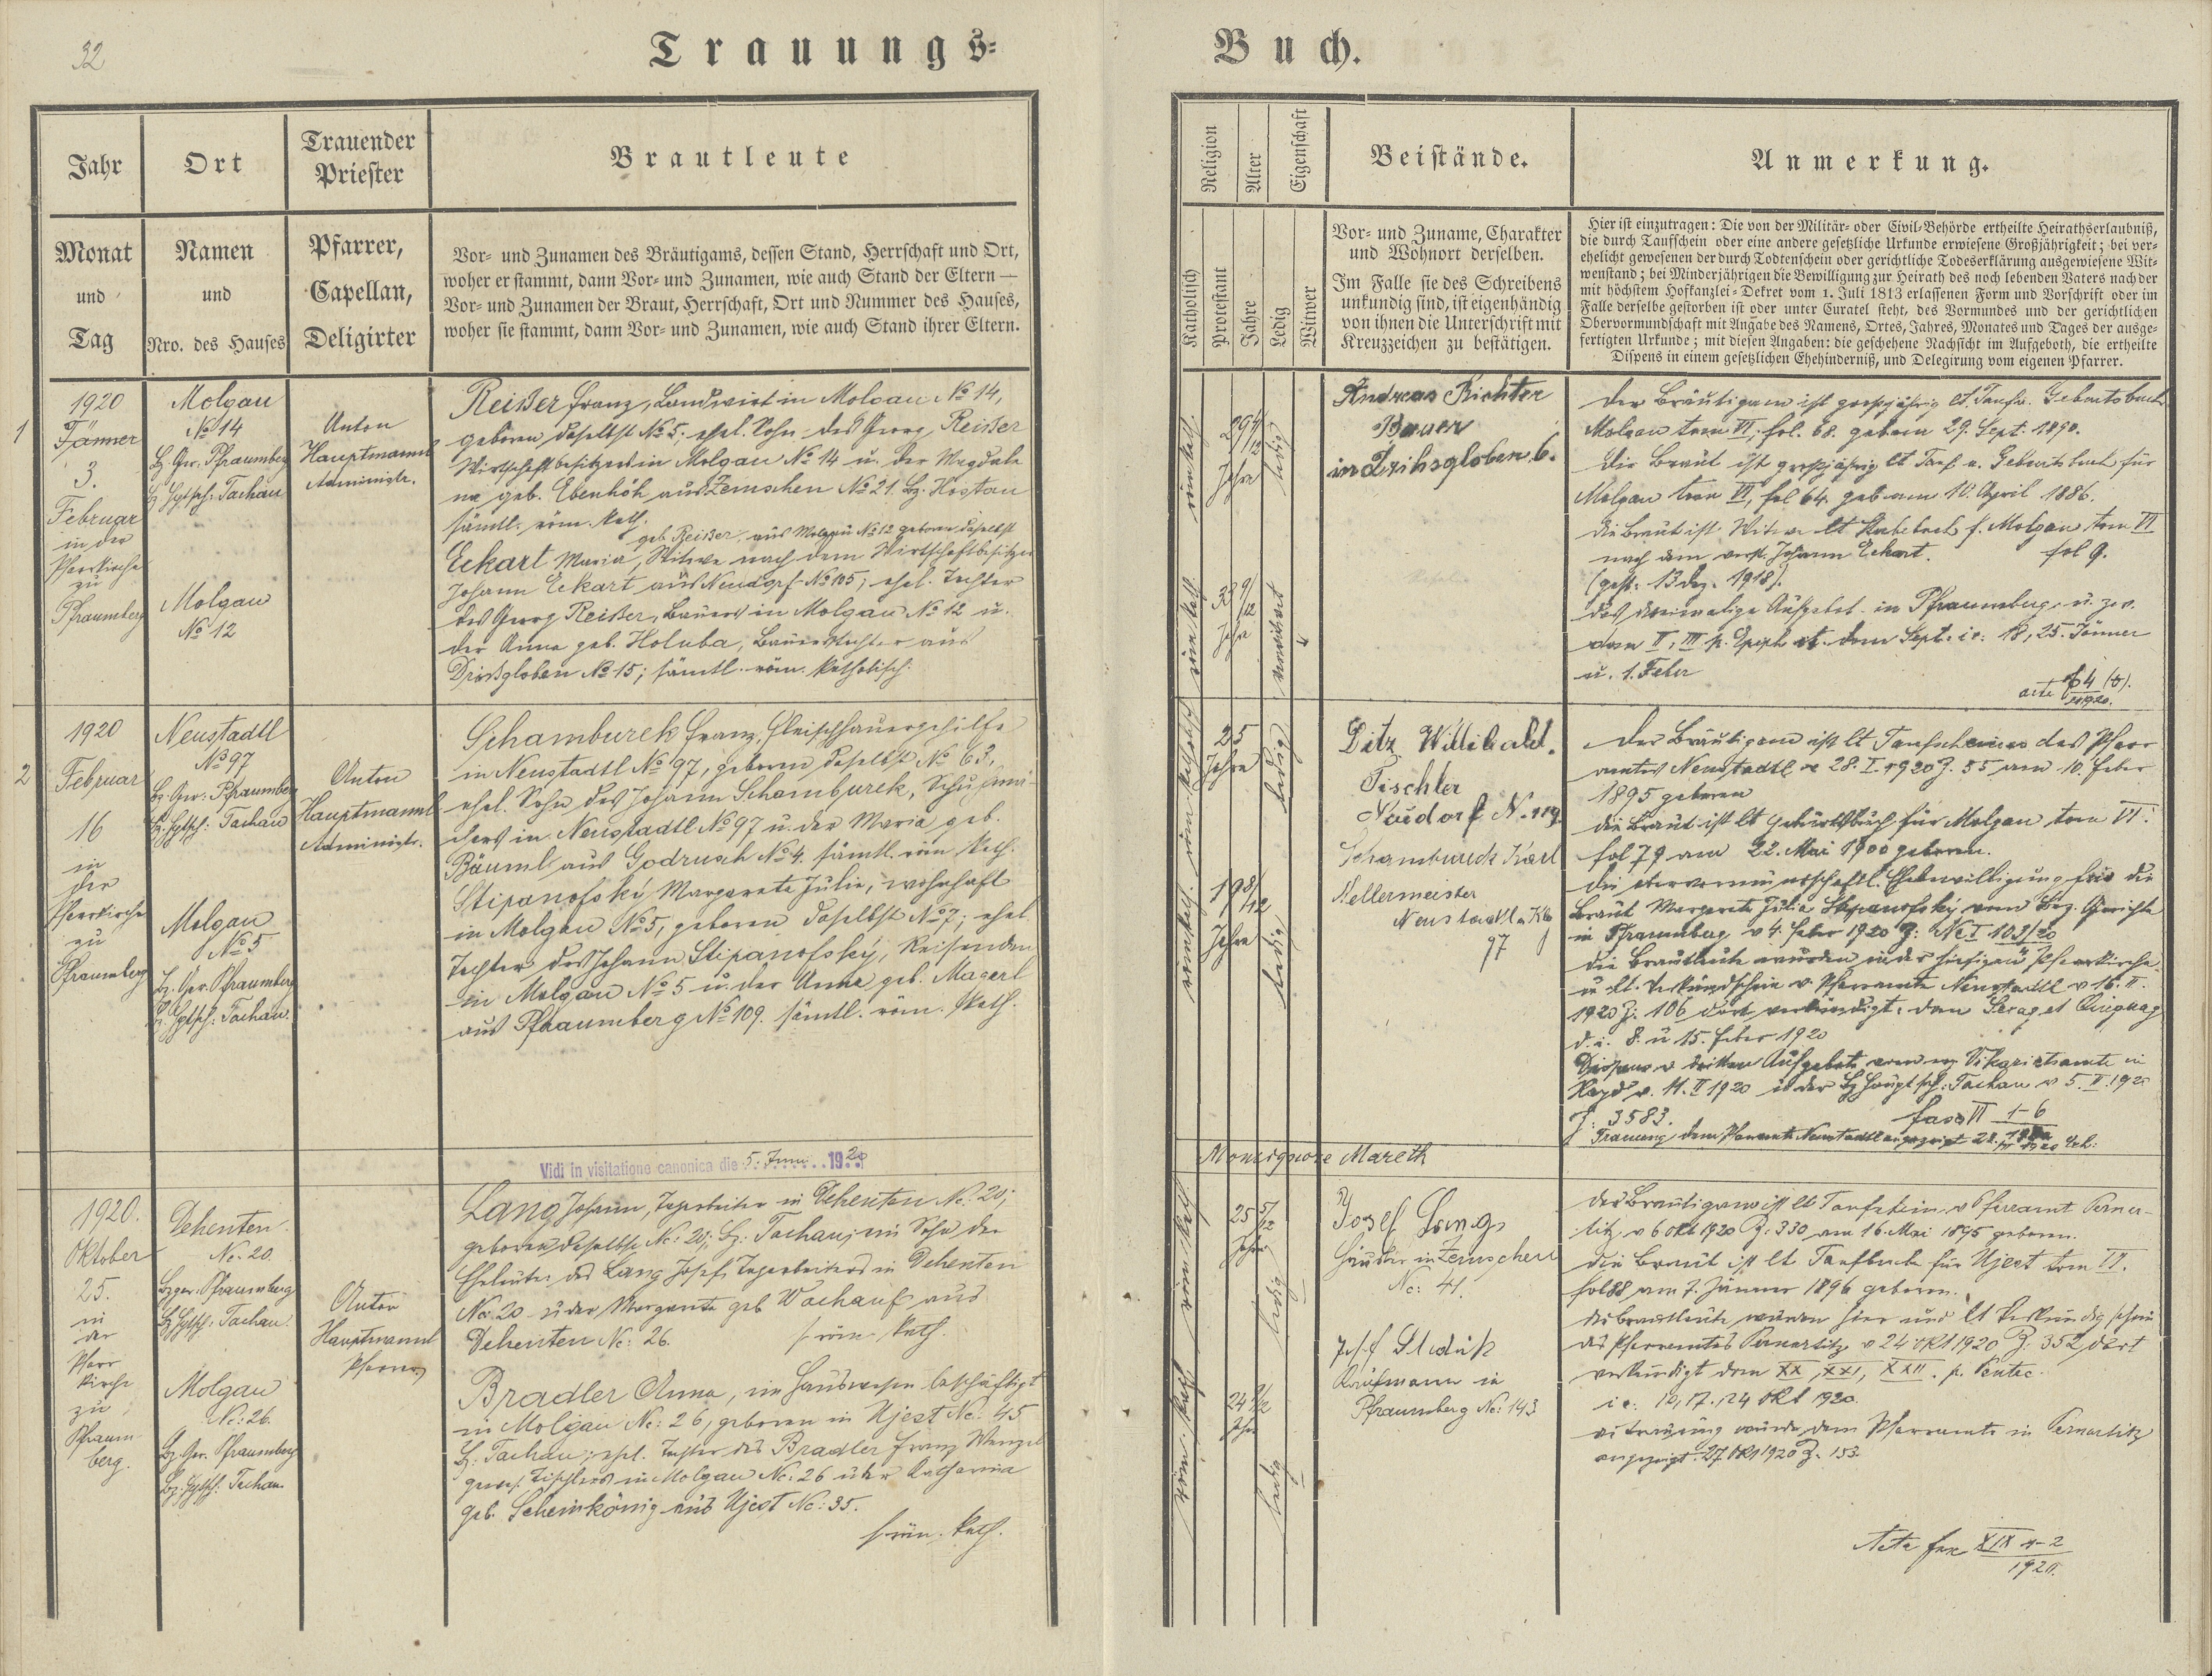 32
Trauungs-
Buch.
Jahr
Ort
Trauender
Priester
Brautleute
Monat
und
Tag
Namen
und
Nro. des Hauses
Pfarrer,
Capellan,
Deligirter
Vor- und Zunamen des Bräutigams, dessen Stand, Herrschaft und Ort,
woher er stammt, dann Vor- und Zunamen, wie auch Stand der Eltern —
Vor- und Zunamen der Braut, Herrschaft, Ort und Nummer des Hauses,
woher sie stammt, dann Vor- und Zunamen, wie auch Stand ihrer Eltern.
Religion
Alter
Eigenschaft
Beistände.
Anmerkung.
Katholisch
Protestant
Jahre
Ledig
Witwer
Vor- und Zuname, Charakter
und Wohnort derselben.
Im Falle sie des Schreibens
unkundig sind, ist eigenhändig
von ihnen die Unterschrift mit
Kreuzzeichen zu bestätigen.
Hier ist einzutragen: Die von der Militär- oder Civil-Behörde ertheilte Heirathserlaubniß,
die durch Taufschein oder eine andere gesetzliche Urkunde erwiesene Großjährigkeit; bei ver-
ehelicht gewesenen der durch Todtenschein oder gerichtliche Todeserklärung ausgewiesene Wit-
wenstand; bei Minderjährigen die Bewilligung zur Heirath des noch lebenden Vaters nach der
mit höchstem Hofkanzlei-Dekret vom 1. Juli 1813 erlassenen Form und Vorschrift oder im
Falle derselbe gestorben ist oder unter Curatel steht, des Vormundes und der gerichtlichen
Obervormundschaft mit Angabe des Namens, Ortes, Jahres, Monates und Tages der ausge-
fertigten Urkunde; mit diesen Angaben: die geschehene Nachsicht im Aufgeboth, die ertheilte
Dispens in einem gesetzlichen Ehehinderniß, und Delegirung vom eigenen Pfarrer.
1
1920
Jänner
3.
Februar
in der
Pfarrkirche
zu
Pfraumberg
Molgau
No 14
Bz. Ger. Pfraumberg
Bz. Hptsch: Tachau
Molgau
No 12
Anton
Hauptmannl
Administr.
Reißer Franz, Landwirt in Molgau No 14,
geboren daselbst No 5; ehel. Sohn des Georg Reißer
Wirtschaftsbesitzers in Molgau No 14 u. der Magdale
na geb. Ebenhöh aus Zemschen No 21. Bz. Hostau
sämtl. röm. kath.
geb. Reißer aus Molgau No 12 geboren daselbst
Eckart Maria, Witwe nach dem Wirtschaftsbesitzer
Johann Eckart aus Neudorf No 105; ehel. Tochter
des Georg Reißer, Bauers in Molgau No 12 u.
der Anna geb. Holuba, Bauerstochter aus
Drißgloben No 15; sämtl. röm. katholisch.
röm. kath.
29 4/12
Jahre
ledig
röm. kath.
33 9/12
Jahre
verwitwet
Andreas Richter
Bauer
in 6.
Der Bräutigam ist großjährig lt. Geburtsbuch
Molgau tom VI, fol. 68. geboren 29. Sept. 1890.
Die Braut ist großjährig lt Tauf u. Geburtsbuch für
Molgau tom VI, fol 64. geb. am 10. April 1886.
die Braut ist Witwe lt Sterbebuch f. Molgau tom VI
nach dem verst. Johann Eckart. fol 9.
(gest. 13 Dez. 1918).
das dreimalige Aufgebot in Pfraumberg u. zw.
dom II, III p. Epiph et. dom Sept. ie: 18, 25. Jänner
u. 1. Feber
2
1920
Februar
16
in
der
Pfarrkirche
zu
Pfraumberg
Neustadtl
No 97
Bz. Ger: Pfraumberg
Bz. Hptsch: Tachau
Molgau
No 5
Bz. Ger. Pfraumberg
Bz. Hptsch: Tachau.
Anton
Hauptmannl
Administr.
Schamburek Franz, Fleischhauergehilfe
in Neustadtl No 97, geboren daselbst No 63,
ehel. Sohn des Johann Schamburek, Schuhma
chers in Neustadtl No 97 u. der Maria geb.
Bäuml aus Godrusch No 4. sämtl. röm kath.
Stipanofský Margareta Julie, wohnhaft
in Molgau No 5, geboren daselbst No 7; ehel.
Tochter des Johann Stipanofský, Reisenden
in Molgau No 5 u. der Anna geb. Magerl
aus Pfraumberg No 109. sämtl. röm. kath.
röm. katholisch
25
Jahre
ledig
röm. kath.
19 8/12
Jahre
ledig
Ditz Willibald.
Tischler
Neudorf N. 119.
Schamburek Karl
Kellermeister
Neustadtl
97
Der Bräutigam ist lt Taufscheines des Pfarr
amtes Neustadtl v 28. I. 1920 Z. 55 am 10. Feber
1895 geboren
die Braut ist lt Geburtsbuch für Molgau tom VI.
fol 79 am 22. Mai 1900 geboren.
die obervormundschaftl. Ehebewilligung für die
Braut Margareta Julia Stipanofský vom Bez. Gerichte
in Pfraumberg v 4. Feber 1920 Z: Nc I 103/20
die Brautleute wurden in der hiesigen Pfarrkirche
u lt. Verkündschein v. Pfarramte Neustadtl v 16. II.
1920 Z. 106 dort verkündigt: dom Sexag et Quinquag
d. i. 8. u 15. Feber 1920
Dispens v dritten Aufgebote vom Vikariatsamte in
Hayd v. 11. II 1920 u der Bz Hauptsch: Tachau v 5. II. 1920
Z. 3583. fasc VI 1-6
Trauung dem Pfarramte Neustadtl angezeigt
Vidi in visitatione canonica die 5. Juni 1920
Monsignore Mareth
1920.
Oktober
25.
in
der
Pfarr
kirche
zu
Pfraum
berg.
Dehenten
No. 20.
Bzger. Pfraumberg
Bz Hptsch. Tachau.
Molgau
No: 26.
Bz. Ger. Pfraumberg
Bz. Hptsch. Tachau.
Anton
Hauptmannl
Pfarrer
Lang Johann, Tagarbeiter in Dehenten No. 20;
geboren daselbst No: 20; Bz. Tachau; ein Sohn der
Eheleute des Lang Josef, Tagarbeiters in Dehenten
No. 20 u der Margareta geb Wachauf aus
Dehenten No: 26. s. röm. kath.
Bradler Anna, im Hauswesen beschäftigt
in Molgau No: 26, geboren in Ujest No: 45
Bz. Tachau; ehel. Tochter des Bradler Franz Wenzel
gewes. Tischlers in Molgau No: 26 u der Katharina
geb. Scheinkönig aus Ujest No: 35.
s röm. kath.
röm. kath.
25 5/12
Jahre
ledig
röm. kath
24 9/12
Jahre
ledig
Josef Lang
Häusler in Zemschen
No: 41.
Josef
Kaufmann in
Pfraumberg No: 143
der Bräutigam ist lt Taufschein v Pfarramt Perner-
titz v 6 Okt 1920 Z. 330 am 16. Mai 1895 geboren.
die Braut ist lt Taufbuch für Ujest tom VI.
fol 88 am 7. Jänner 1896 geboren.
die Brautleute wurden hier und lt Verkündigschein
des Pfarramtes Pernartitz v 24 Okt 1920 Z. 352 dort
verkündigt dom XX, XXI, XXII. p. Pentec.
i e: 10, 17. 24 Okt 1920.
die Trauung wurde dem Pfarramte in Pernartitz
angezeigt. 27. Okt 1920 Z. 153.
1920.